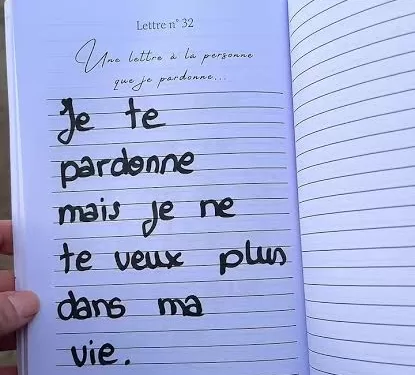 Lettre n° 32
Une lettre à la personne
que je pardonne...
Je te
pardonne
mais je ne
te veux plus
dans ma
vie.